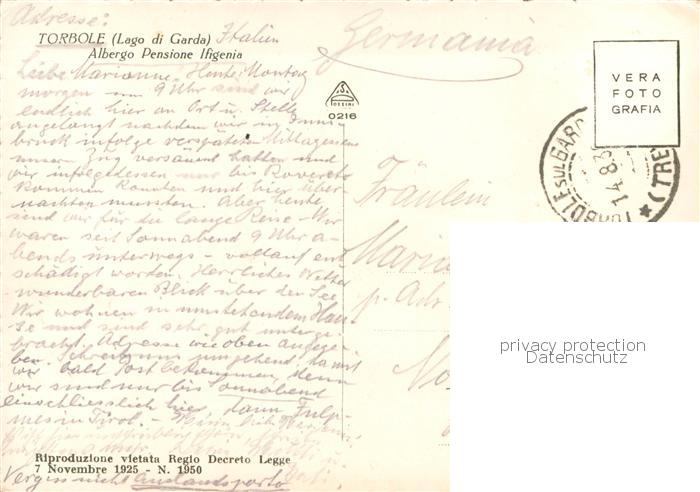 Adresse:
TORBOLE (Lago di Garda) Italien
Albergo Pensione Ifigenia
Liebe Marianne! Heute Montag
morgen um 9 Uhr sind wir
endlich hier an Ort u. Stelle
angelangt nachdem wir in Inns-
bruck infolge verspäteten Mittagessens
unser Zug versäumt hatten und
wir infolgedessen nur bis Rovereto
kommen konnten und hier über-
nachten mussten. Aber heute
sind wir für die lange Reise - Wir
waren seit Sonnabend 9 Uhr a-
bends unterwegs - vollauf ent-
schädigt worden. Herrliches Wetter
wunderbaren Blick über den See
Wir wohnen in umstehendem Hau-
se und sind sehr gut unterge-
bracht. Adresse wie oben angege-
ben. Schreib umgehend, damit
wir bald Post bekommen, denn
wir sind nur bis Sonnabend
einschliesslich hier, dann Fulp-
mes in Tirol.
Riproduzione vietata Regio Decreto Legge
7 Novembre 1925 - N. 1950
Vergiss nicht Auslandsporto
OSSINI
0216
Germania
VERA
FOTO
GRAFIA
TORBOLE SUL GARDA
(TRE
14.8.3
Fräulein
p. Adr
privacy protection
Datenschutz